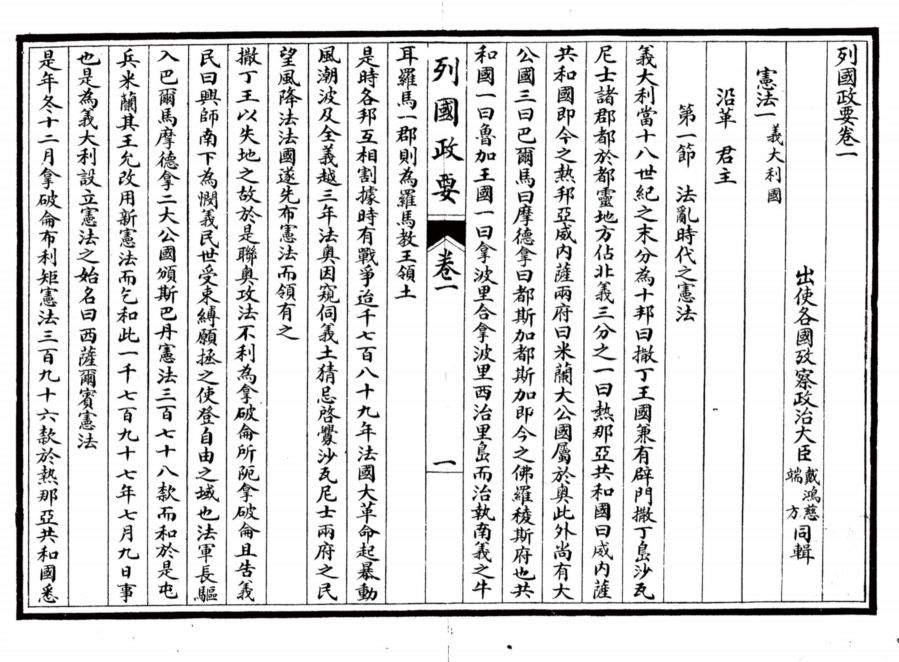 列國政要卷一
出使各國攷察政治大臣戴鴻慈端方同輯
憲法一 義大利國
沿革 君主
第一節 法亂時代之憲法
義大利當十八世紀之末分為十邦曰撒丁王國兼有辟門撒丁島沙瓦
尼士諸郡都於都靈地方佔北義三分之一曰熱那亞共和國曰威內薩
共和國即今之熱邦亞威內薩兩府曰米蘭大公國屬於奧此外尚有大
公國三曰巴爾馬曰摩德拿曰都斯加都斯加即今之佛羅稜斯府也共
和國一曰魯加王國一曰拿波里合拿波里西治里島而治執南義之牛
耳羅馬一郡則為羅馬教王領土
列國政要 卷一 一
是時各邦互相割據時有戰爭迨千七百八十九年法國大革命起暴動
風潮波及全義越三年法奧因窺伺義土猜忌啓釁沙瓦尼士兩府之民
望風降法法國遂先布憲法而領有之
撒丁王以失地之故於是聯奧攻法不利為拿破侖所阨拿破侖且告義
民曰興師南下為憫義民世受束縛願拯之使登自由之域也法軍長驅
入巴爾馬摩德拿二大公國頒斯巴丹憲法三百七十八款而和於是屯
兵米蘭其王允改用新憲法而乞和此一千七百九十七年七月九日事
也是為義大利設立憲法之始名曰西薩爾賓憲法
是年冬十二月拿破侖布利矩憲法三百九十六款於熱那亞共和國悉